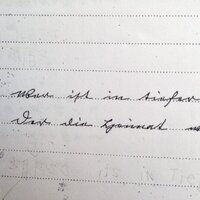 Wer ist in tiefer
Der die Heimat